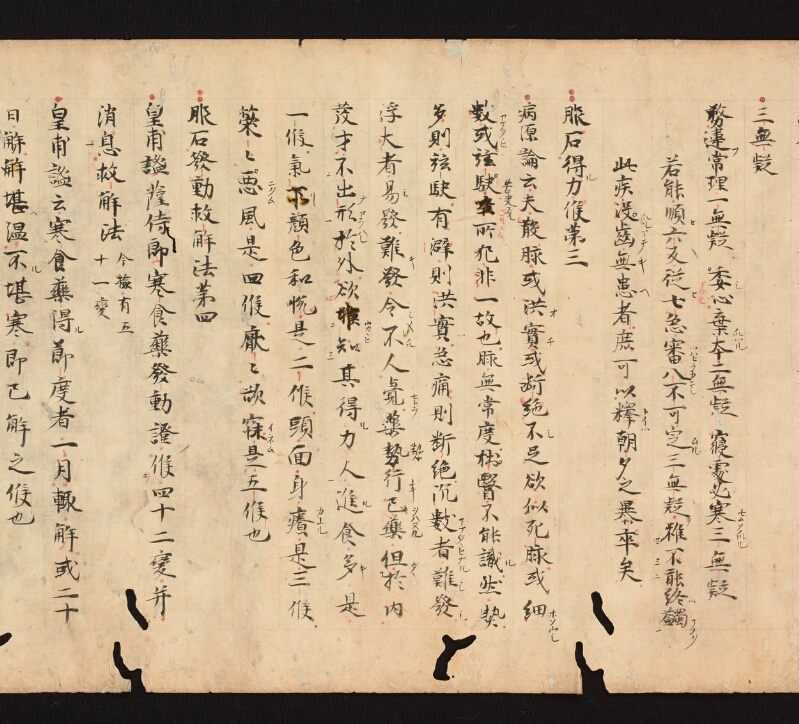 三無疑
務違常理一無疑 委心棄本二無疑 寢處必寒三無疑
若能順六反從七急審八不可定三無疑雖不能終蠲
此疾没齒無患者庶可以釋朝夕之暴卒矣
服石得力候第三
病源論云夫散脉或洪實或断絶不足欲似死脉或細
數或弦駃所犯非一故也脉無常度拙醫不能識也熱
多則弦駃有澼則洪實急痛則断絶沉數者難發
浮大者易發難發令不人覺藥勢行已藥但於内
發才不出形於外欲知其得力人進食多是
一候氣下顔色和悦是二候頭面身癢是三候
策々惡風是四候厭々欲寐是五候也
服石發動救解法第四
皇甫謐薩侍郎寒食藥發動證候四十二變并
消息救解法 今檢有五十一變
皇甫謐云寒食藥得節度者一月輙解或二十
日解解堪温不堪寒即已解之候也